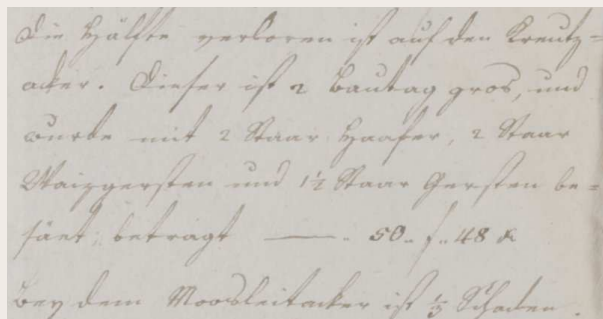 Die Hälfte verloren ist auf den Kreutz=
acker. Dieser ist 2 Bautag gros, und
wurde mit 2 Staar Haafer, 2 Staar
Waizgersten und 1½ Staar Gersten be=
säet; betragt —— . 50 .. f .. 48 x
Bey dem Moosleitacker ist ½ Schaden.